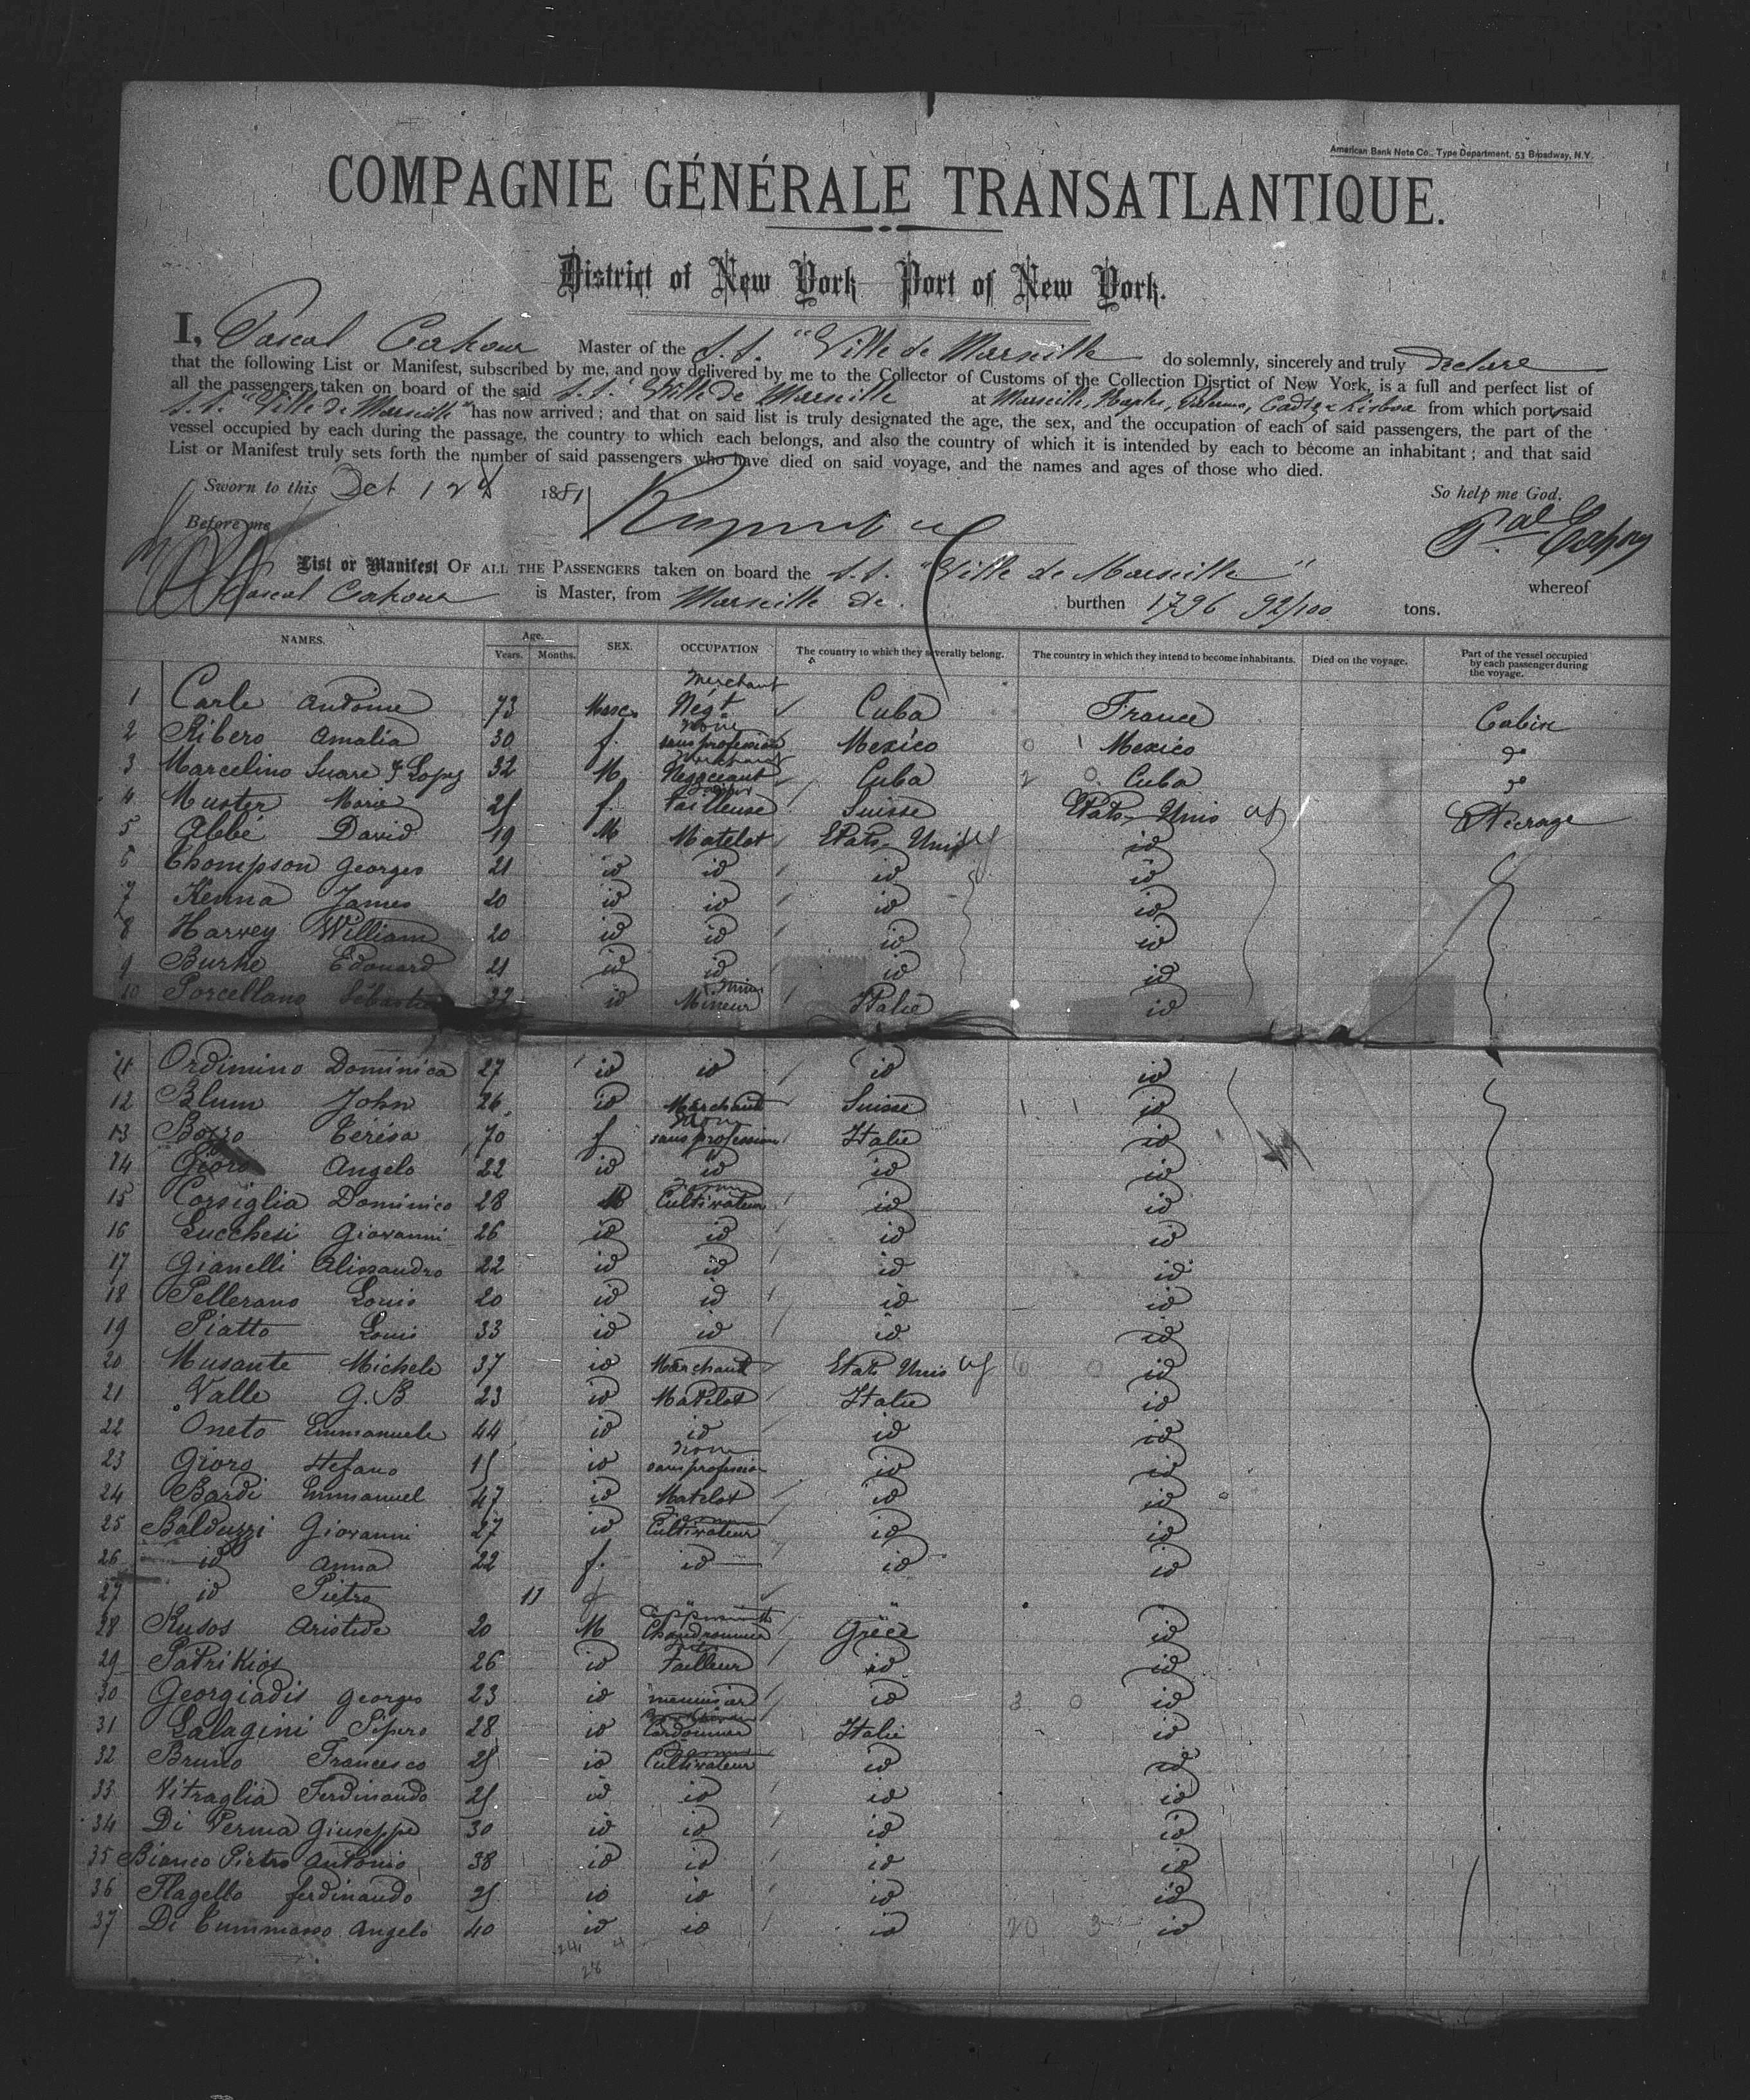 American Bank Note Co., Type Department, 53 Broadway, N.Y.
COMPAGNIE GÉNÉRALE TRANSATLANTIQUE.
District of New York Port of New York.
I, Pascal Cahour Master of the S.S. "Ville de Marseille do solemnly, sincerely and truly declare
that the following List or Manifest, subscribed by me, and now delivered by me to the Collector of Customs of the Collection Disrtict of New York, is a full and perfect list of
all the passengers taken on board of the said S.S. Ville de Marseille at Marseille, Naples, Palermo, Cadiz & Lisboa from which port said
S.S. "Ville de Marseille" has now arrived ; and that on said list is truly designated the age, the sex, and the occupation of each of said passengers, the part of the
vessel occupied by each during the passage, the country to which each belongs, and also the country of which it is intended by each to become an inhabitant ; and that said
List or Manifest truly sets forth the number of said passengers who have died on said voyage, and the names and ages of those who died.
Sworn to this Oct 12 1881 So help me God.
Before me
List or Manifest OF ALL THE PASSENGERS taken on board the S.S. "Ville de Marseille" whereof
Pascal Cahour is Master, from Marseille &c. burthen 1796 92/100 tons.
NAMES. Age. Years. Months. SEX. OCCUPATION The country to which they severally belong. The country in which they intend to become inhabitants. Died on the voyage. Part of the vessel occupied by each passenger during the voyage.
1 Carle Antoine 73 Masc. Negt Merchant Cuba France Cabin
2 Ribero Amalia 30 f. sans profession None Mexico 0 1 Mexico do
3 Marcelino Suare y Lopez 32 M Négociant Merchant Cuba 2 0 Cuba do
4 Muster Marie 25 f. Tailleuse Suisse Etats-Unis Steerage
5 Abbé David 19 M Matelot Etats-Unis id
6 Thompson Georges 21 id id id id
7 Kenna James 20 id id id id
8 Harvey William 20 id id id id
9 Burke Edouard 21 id id id id
10 Porcellano 32 id Mineur Italie id
11 Ordimino Dominica 27 id id id id
12 Blum John 26 id Marchand Suisse 1 1 id
13 Bozzo Térésa 70 f sans profession None Italie id
14 Gioro Angelo 22 id id id id
15 Corsiglia Dominico 28 M Cultivateur id id
16 Lucchesi Giovanni 26 id id id id
17 Gianelli Alissandro 22 id id id id
18 Pellerano Louis 20 id id id id
19 Piatto Louis 33 id id id id
20 Musante Michele 37 id Marchand Etats Unis 6 0 id
21 Valle G.B. 23 id Matelot Italie id
22 Oneto Emmanuele 44 id id id id
23 Gioro Stefano 15 id sans profession None id id
24 Bardi Emmanuel 47 id Matelot id id
25 Balduzzi Giovanni 27 id Cultivateur id id
26 id Anna 22 f. id id id
27 id Pietro 11 f " "
28 Rusos Aristide 20 M Chaudronnier Coppersmith Grèce id
29 Patrikios 26 id Tailleur id id
30 Georgiadis Georges 23 id menuisier id 3 0 id
31 Lalagini Pipero 28 id Cordonnier Italie id
32 Bruno Francesco 25 id Cultivateur id id
33 Vitraglia Ferdinando 25 id id id id
34 Di Perma Giuseppe 30 id id id id
35 Bianco Pietro Antonio 38 id id id id
36 Flagello ferdinando 25 id id id id
37 Di Tummasso Angelo 40 id id id 20 3 id